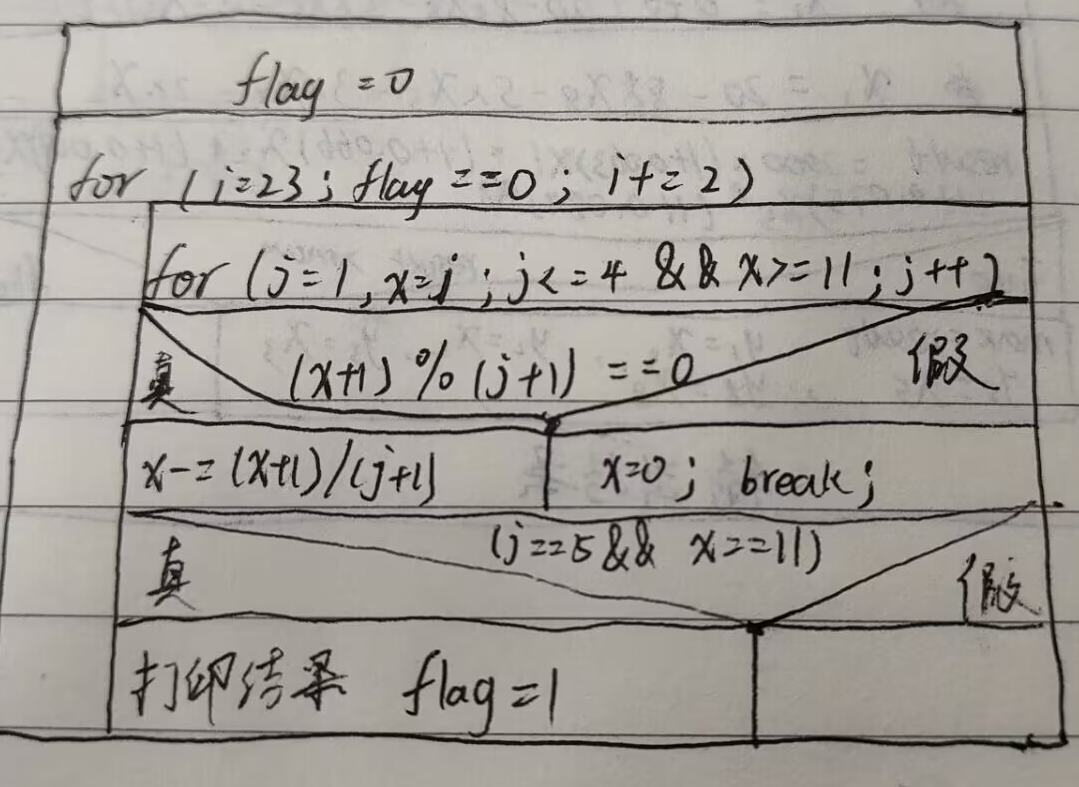 flag = 0
for (i=23; flag ==0; i+=2)
for (j=1, x=j; j<=4 && x>=11; j++)
真 (x+1) % (j+1) ==0 假
x-=(x+1)/(j+1) x=0; break;
(j==5 && x==11)
真 假
打印结果 flag=1